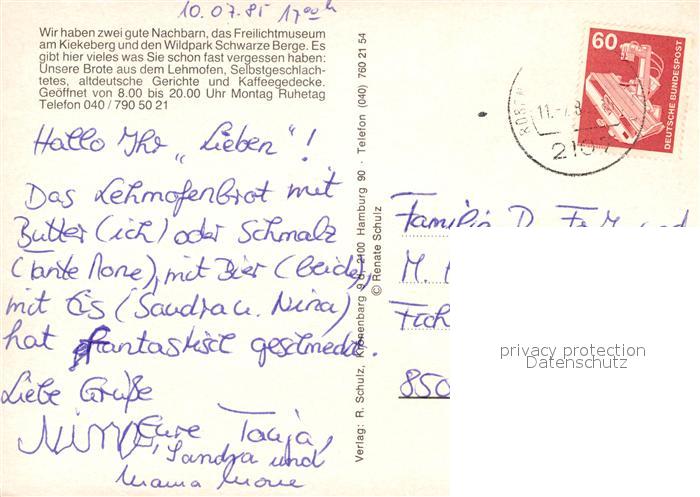 10.07.85 17ººh
Wir haben zwei gute Nachbarn, das Freilichtmuseum
am Kiekeberg und den Wildpark Schwarze Berge. Es
gibt hier vieles was Sie schon fast vergessen haben:
Unsere Brote aus dem Lehmofen, Selbstgeschlach-
tetes, altdeutsche Gerichte und Kaffeegedecke.
Geöffnet von 8.00 bis 20.00 Uhr Montag Ruhetag
Telefon 040 / 790 50 21
Hallo Ihr „Lieben"!
Das Lehmofenbrot mit
Butter (ich) oder Schmalz
(Tante Mone), mit Bier (beide),
mit Eis (Sandra u. Nina)
hat fantastisch geschmeckt.
Liebe Grüße
Nina Eure Tanja,
Sandra und
Mama Mone
Verlag: R. Schulz, Kronenbarg 9 d, 2100 Hamburg 90 · Telefon (040) 760 21 54
© Renate Schulz
60
DEUTSCHE BUNDESPOST
11.-7.8
210
Familie D.
M.
850
privacy protection
Datenschutz